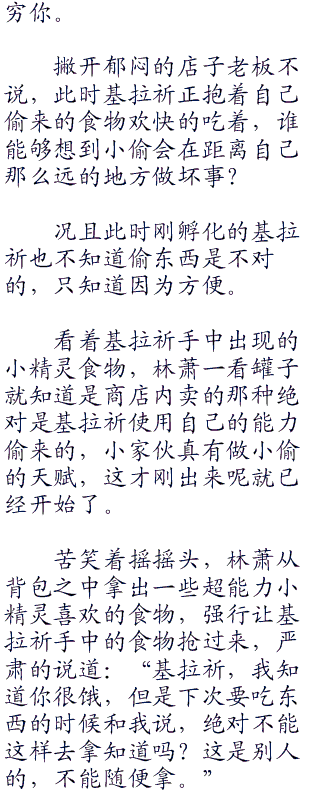 穷你。
撇开郁闷的店子老板不
说，此时基拉祈正抱着自己
偷来的食物欢快的吃着，谁
能够想到小偷会在距离自己
那么远的地方做坏事？
况且此时刚孵化的基拉
祈也不知道偷东西是不对
的，只知道因为方便。
看着基拉祈手中出现的
小精灵食物，林萧一看罐子
就知道是商店内卖的那种绝
对是基拉祈使用自己的能力
偷来的，小家伙真有做小偷
的天赋，这才刚出来呢就已
经开始了。
苦笑着摇摇头，林萧从
背包之中拿出一些超能力小
精灵喜欢的食物，强行让基
拉祈手中的食物抢过来，严
肃的说道：“基拉祈，我知
道你很饿，但是下次要吃东
西的时候和我说，绝对不能
这样去拿知道吗？这是别人
的，不能随便拿。”